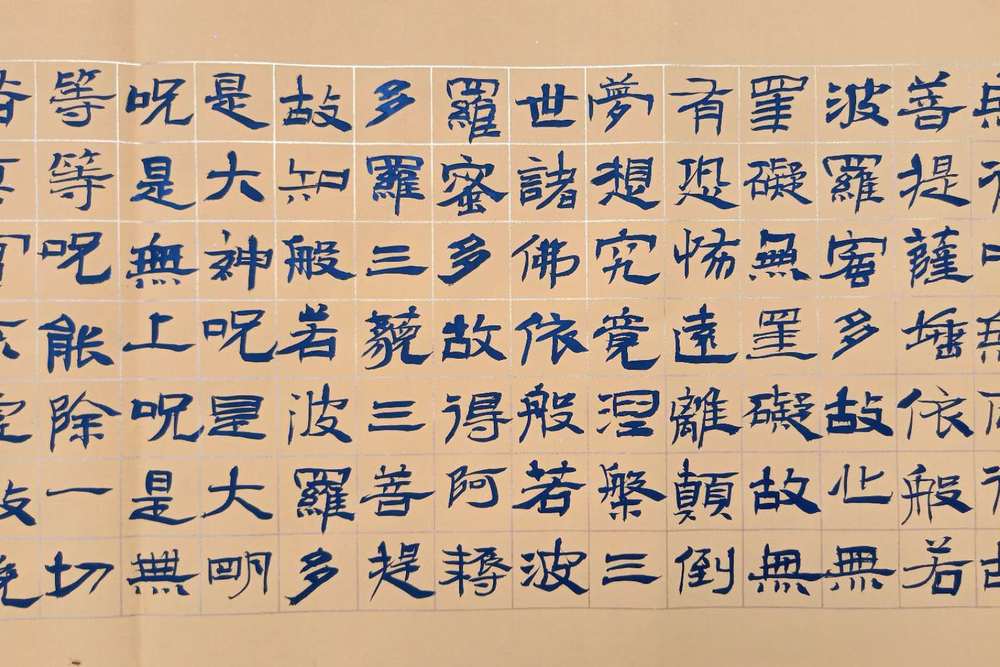 善提薩埵依般若
波羅蜜多故心無
罣礙無罣礙故無
有恐怖遠離顛倒
夢想究竟涅槃三
世諸佛依般若波
羅蜜多故得阿耨
多羅三藐三善提
故知般若波羅多
是大神呪是大明
呪是無上呪是無
等等呪能除一切